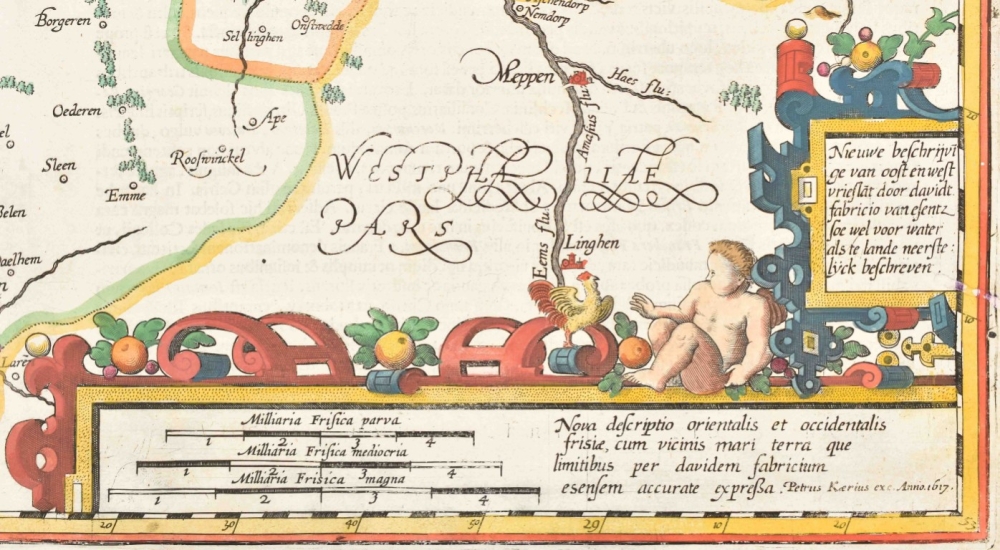 Borgeren
Nemdorp
Onstwedde
Sellinghen
Meppen
Haes flu:
Oederen
Ape
Amasius flu
Sleen
Rooswinckel
Emme
WESTPHALIAE
PARS
Eems flu
Linghen
Laren
20
Nieuwe beschrijvi
ge van oost en west
vrieslāt door davidt
fabricio van esentz
soe wel voor water
als te lande neerste:
lÿck beschreven
10
Milliaria Frisica parva
1 2 3 4
Milliaria Frisica mediocria
1 2 3 4
Milliaria Frisica magna
1 2 3 4
Nova descriptio orientalis et occidentalis
frisiæ, cum vicinis mari terra que
limitibus per davidem fabrictum
esensem accurate expressa. Petrus Kærius exc. Anno. 1617.
20 30 40 50 29 10 20 53